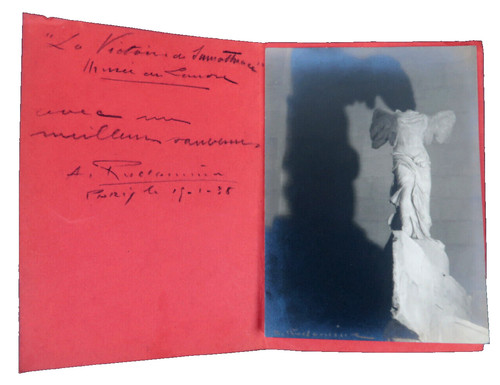 "La Victoire de Samothrace"
Musée du Louvre
avec mes
meilleurs souvenirs
A.
Paris le 19-1-38